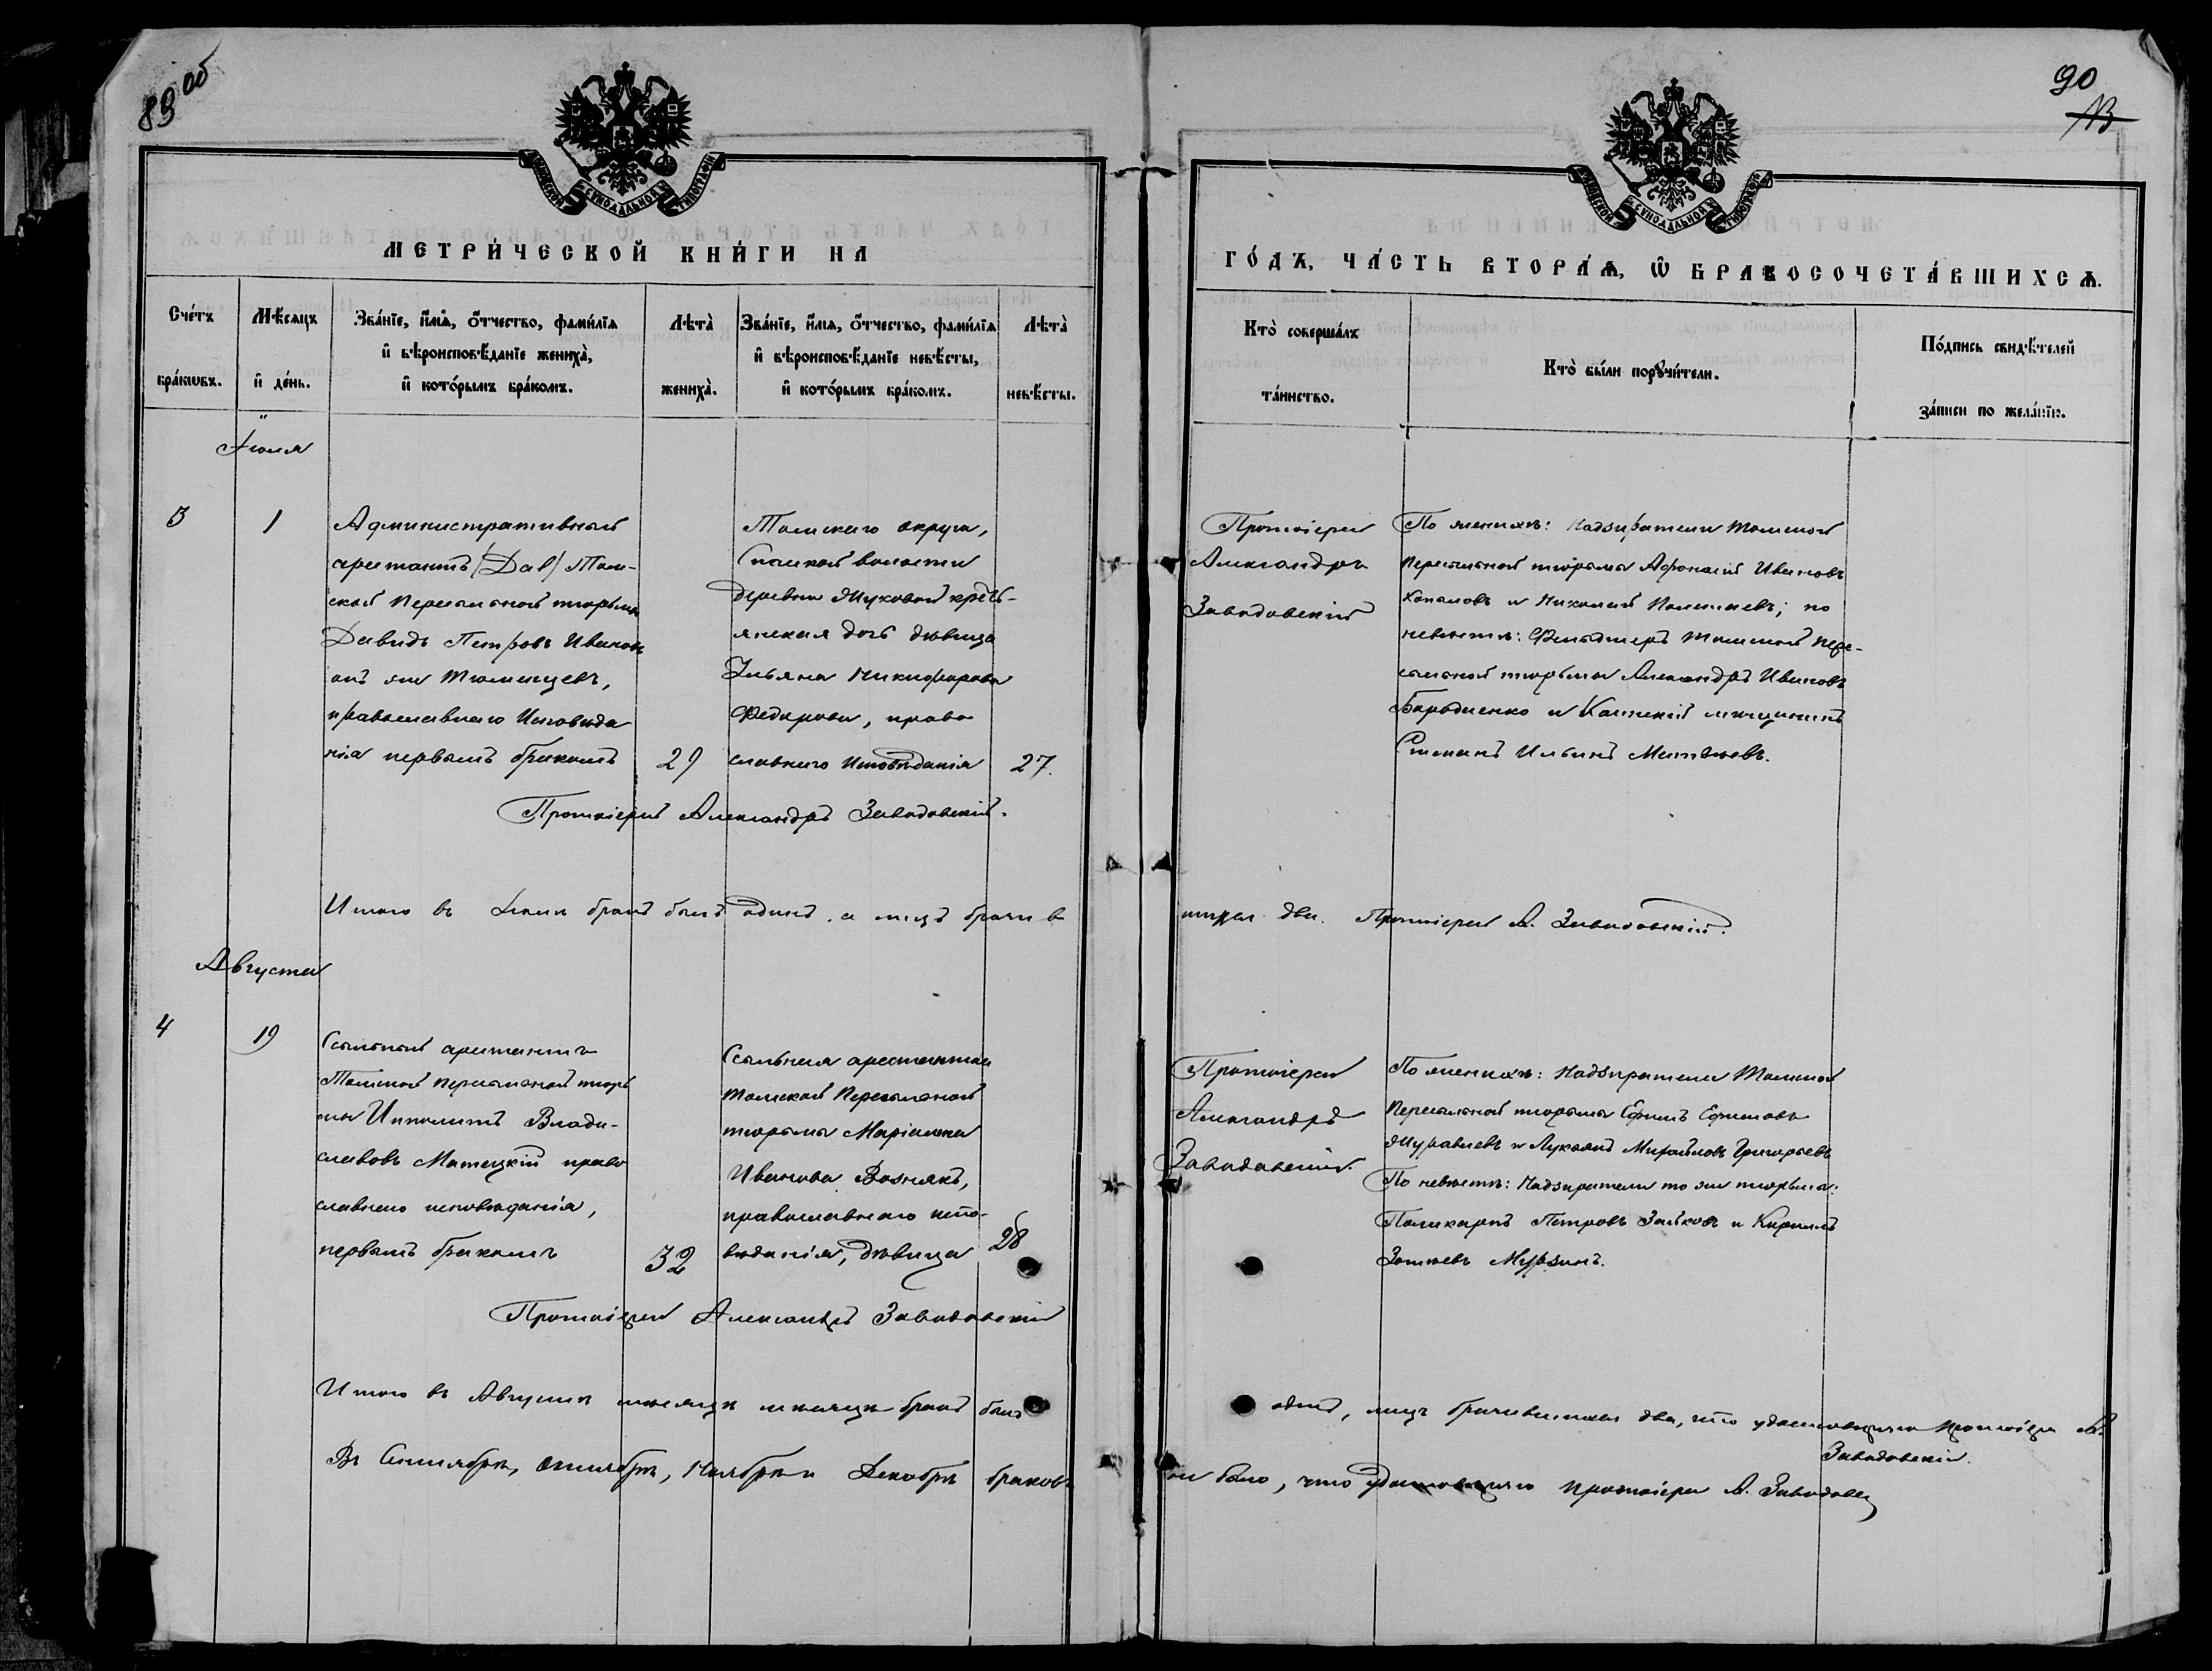 89 об
90
113
МЕТРИ́ЧЕСКОЙ КНИ́ГИ НА
ГО́ДЪ, ЧА́СТЬ ВТОРА́Ѧ, Ѡ БРАКОСОЧЕТА́ВШИХСѦ.
Сче́тъ бра́кѡвъ.
Мѣ́сяцъ и҆ де́нь.
Зва́нїе, и҆́мѧ, ѻ҆́тчество, фамилїѧ
и҆ вѣроисповѣ́данїе жениха̀,
и҆ кото́рымъ бра́комъ.
Лѣта̀ жениха̀.
Зва́нїе, и҆́мѧ, ѻ҆́тчество, фамилїѧ
и҆ вѣроисповѣ́данїе невѣ́сты,
и҆ кото́рымъ бра́комъ.
Лѣта̀ невѣ́сты.
Кто̀ соверша́лъ
та́инство.
Кто̀ бы́ли порꙋчи́тели.
По́дпись свидѣ́телей
за́писи по жела́нїю.
Іюля
3
1
Административный
арестантъ /Dal/ Том-
ской Пересыльной тюрьмы
Давидъ Петровъ Ивановъ
онъ же Тюменцевъ,
православнаго Исповѣда
нія первымъ бракомъ
29
Томскаго округа,
Спаской волости
деревни Жуковой кресть-
янская дочь дѣвица
Ульяна Никифорова
Федорова, право
славнаго Исповѣданія
27.
Протоіерей
Александръ
Заводовскій
По женихѣ: Надзиратели Томской
Пересыльной тюрьмы Афонасій Ивановъ
и Николай; по
невѣстѣ: Фельдшеръ Томской Пере-
сыльной тюрьмы Александръ Ивановъ
Бородиенко и Каинскій мѣщанинъ
Степанъ Ильинъ Матвѣевъ.
Протоіерей Александръ Заводовскій.
Итого въ Іюлѣ бракъ былъ одинъ, а лицъ брачив
шихся два. Протоіерей А. Заводовскій.
Августа
4
19
Ссыльный арестантъ
Томской Пересыльной тюрь
мы Ипполитъ Влади-
славовъ Матецкій право
славнаго исповѣданія,
первымъ бракомъ
32
Ссыльная арестантка
Томской Пересыльной
тюрьмы Маріанна
Иванова Вознякъ,
православнаго испо-
вѣданія, дѣвица
28
Протоіерей
Александръ
Заводовскій.
По женихѣ: Надзиратели Томской
Пересыльной тюрьмы Ефимъ Ефимовъ
Журавлевъ и Лукьянъ Михайловъ Григорьевъ
По невѣстѣ: Надзиратели то же тюрьмы:
Поликарпъ Петровъ Зайковъ и Кирилъ
Зотѣевъ Мурзинъ.
Протоіерей Александръ Заводовскій
Итого въ Августѣ мѣсяцѣ мѣсяцѣ бракъ былъ
одинъ, лицъ брачившихся два, что удостовѣряю протоіерей А.
Заводовскій.
Въ Сентябрѣ, Октябрѣ, Ноябрѣ и Декабрѣ браковъ
не было, что удостовѣряю протоіерей А. Заводовс